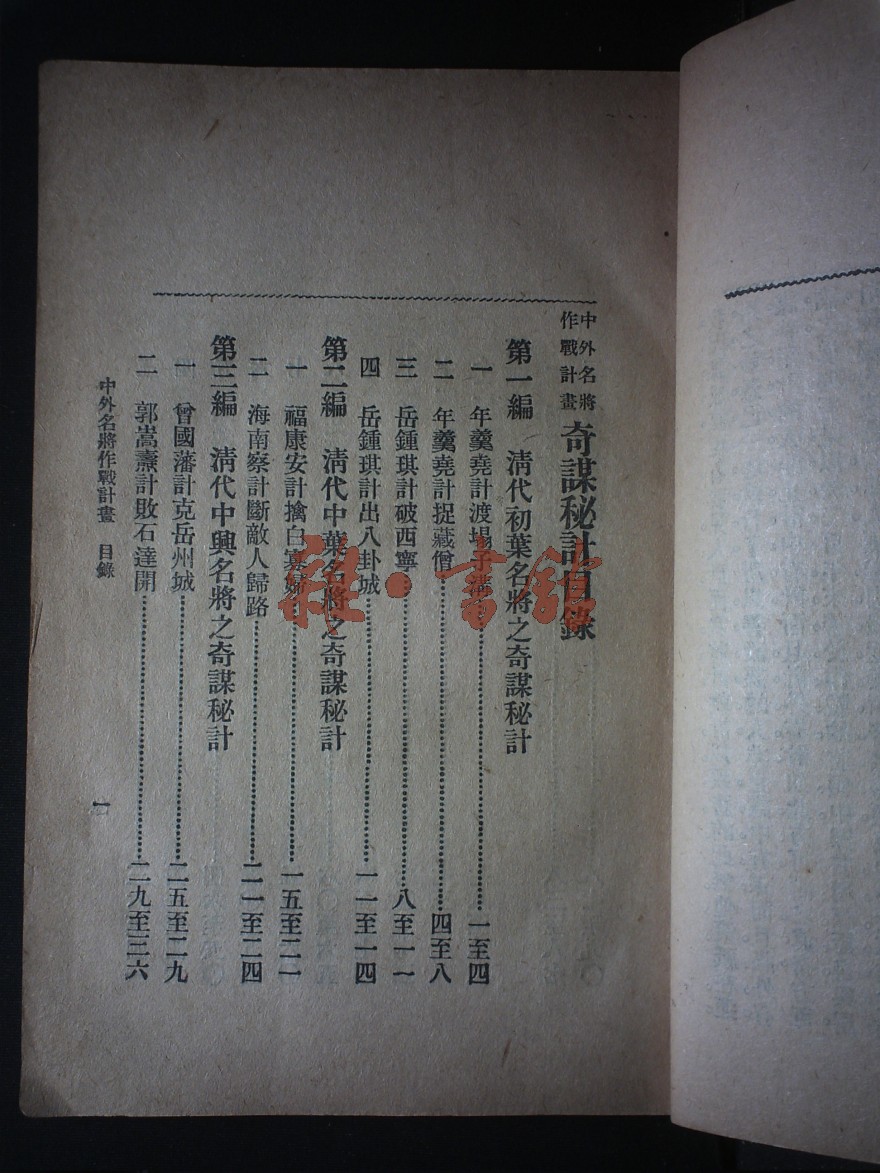 中外名將
作戰計畫
奇謀秘計目錄
第一編 清代初葉名將之奇謀秘計
一 年羹堯計渡塌子溝 一至四
二 年羹堯計捉藏僧 四至八
三 岳鍾琪計破西寧 八至一一
四 岳鍾琪計出八卦城 一一至一四
第二編 清代中葉名將之奇謀秘計
一 福康安計擒白寡婦 一五至二一
二 海南察計斷敵人歸路 二一至二四
第三編 清代中興名將之奇謀秘計
一 曾國藩計克岳州城 二五至二九
二 郭嵩燾計敗石達開 二九至三六
中外名將作戰計畫 目錄 一
書館